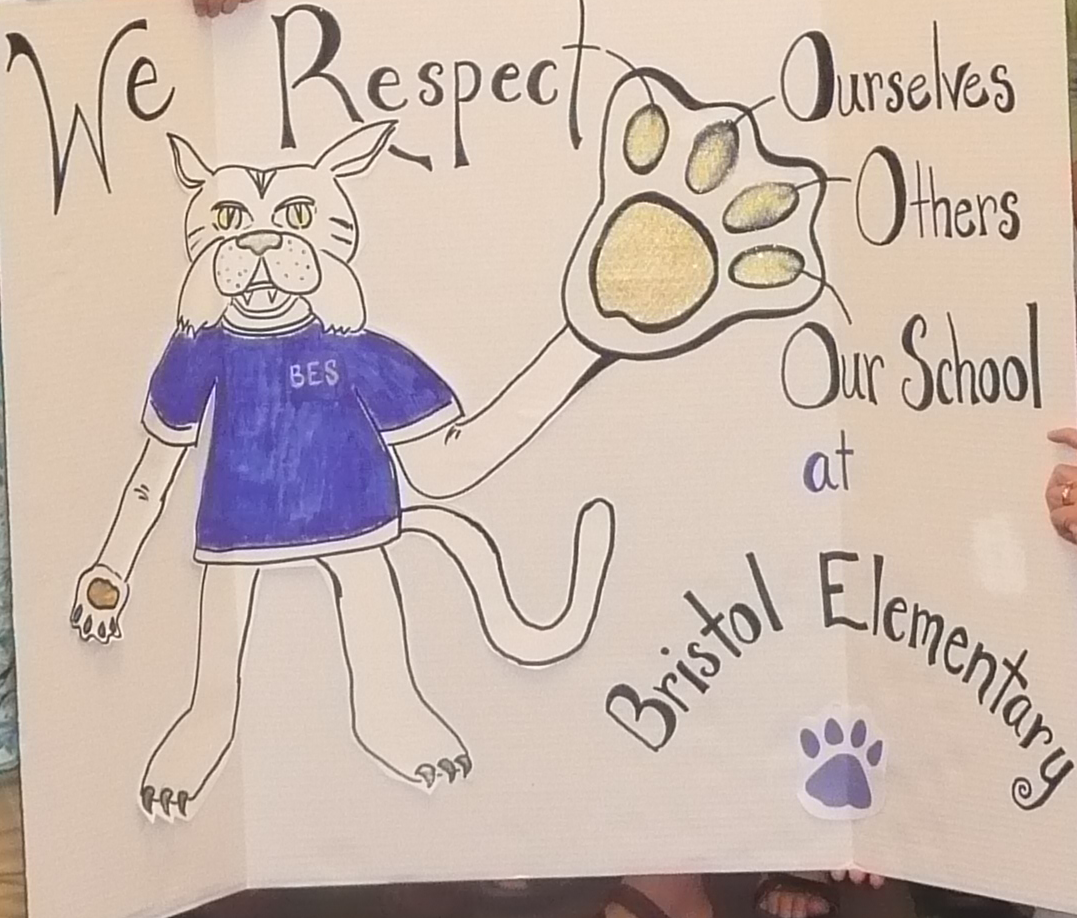 We Respect
Ourselves
Others
Our School
at
Bristol Elementary
BES